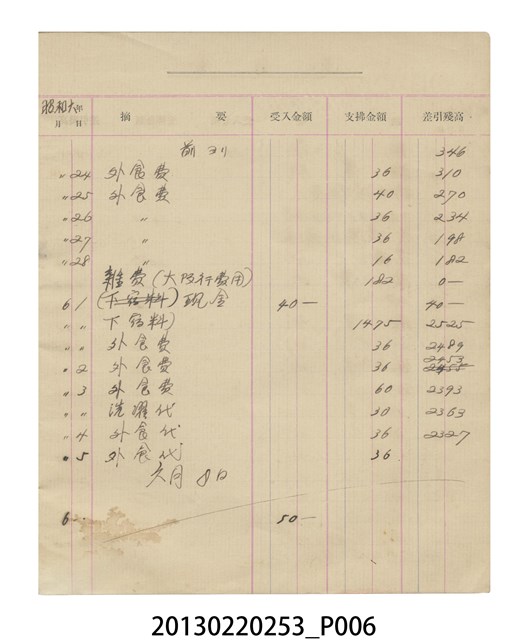 昭和六年
月 日 摘 要 受入金額 支拂金額 差引殘高
前ヨリ 346
〃 24 外食費 36 310
〃 25 外食費 40 270
〃 26 〃 36 234
〃 27 〃 36 198
〃 28 〃 16 182
雜費(大阪行費用) 182 0—
6 1 (下宿料) 現金 40— 40—
〃 〃 下宿料) 14.75 2525
〃 〃 外食費 36 2489
2453
〃 2 外食費 36 2455
〃 3 外食費 60 2393
〃 〃 洗濯代 30 2363
〃 4 外食代 36 2327
〃 5 外食代 36
六月 8日
6 50—
20130220253_P006